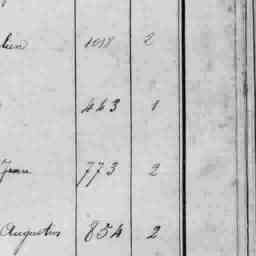 lien 1018 2
443 1
Jean 773 2
Augustus 854 2